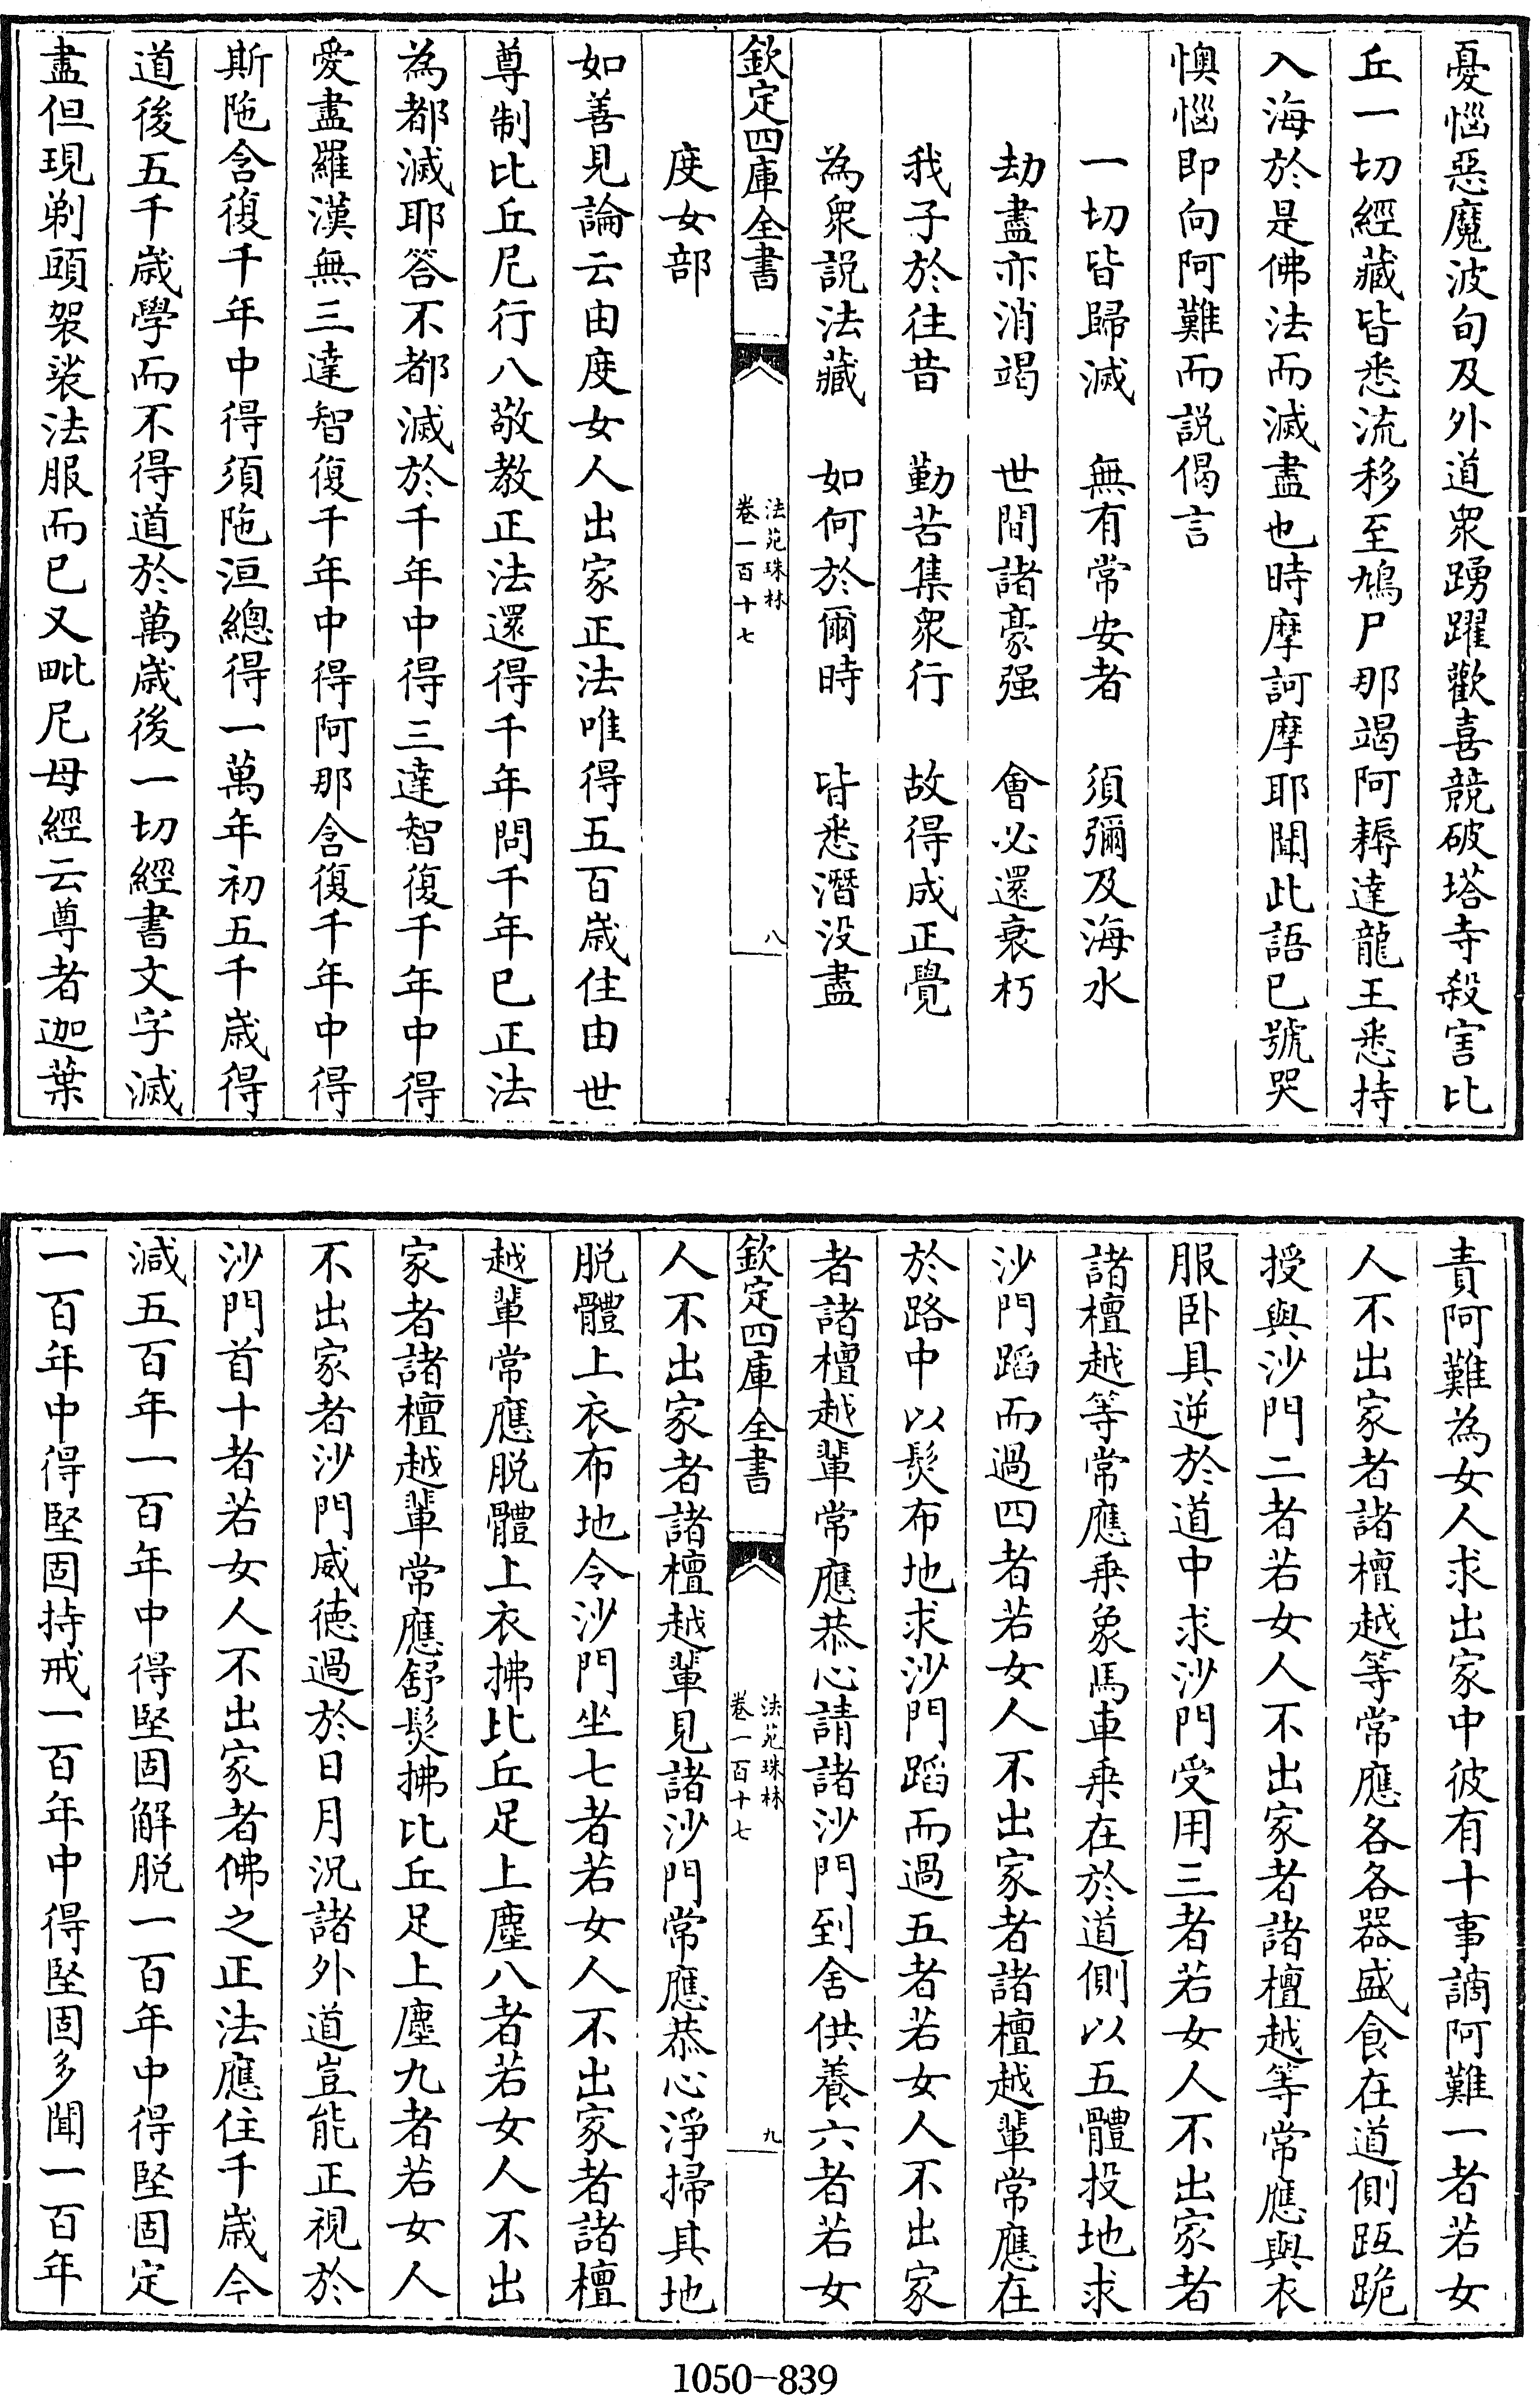 憂惱惡魔波旬及外道衆踴躍歡喜競破塔寺殺害比
丘一切經藏皆悉流移至鳩尸那竭阿耨達龍王悉持
入海於是佛法而滅盡也時摩訶摩耶聞此語已號哭
懊惱即向阿難而説偈言
一切皆歸滅　無有常安者　須彌及海水
劫盡亦消竭　世間諸豪强　會必還衰朽
我子於往昔　勤苦集衆行　故得成正覺
為衆説法藏　如何於爾時　皆悉潛没盡
欽定四庫全書
法苑珠林
卷一百十七
八
度女部
如善見論云由度女人出家正法唯得五百歲住由世
尊制比丘尼行八敬教正法還得千年問千年已正法
為都滅耶答不都滅於千年中得三達智復千年中得
愛盡羅漢無三達智復千年中得阿那含復千年中得
斯陁含復千年中得須陁洹總得一萬年初五千歲得
道後五千歲學而不得道於萬歲後一切經書文字滅
盡但現剃頭袈裟法服而已又毗尼母經云尊者迦葉
責阿難為女人求出家中彼有十事謫阿難一者若女
人不出家者諸檀越等常應各各器盛食在道側𨂠跪
授與沙門二者若女人不出家者諸檀越等常應與衣
服卧具逆於道中求沙門受用三者若女人不出家者
諸檀越等常應乘象馬車乘在於道側以五體投地求
沙門蹈而過四者若女人不出家者諸檀越輩常應在
於路中以髮布地求沙門蹈而過五者若女人不出家
者諸檀越輩常應恭心請諸沙門到舍供養六者若女
欽定四庫全書
法苑珠林
卷一百十七
九
人不出家者諸檀越輩見諸沙門常應恭心淨掃其地
脱體上衣布地令沙門坐七者若女人不出家者諸檀
越輩常應脱體上衣拂比丘足上塵八者若女人不出
家者諸檀越輩常應舒髮拂比丘足上塵九者若女人
不出家者沙門威德過於日月況諸外道豈能正視於
沙門首十者若女人不出家者佛之正法應住千歲今
減五百年一百年中得堅固解脱一百年中得堅固定
一百年中得堅固持戒一百年中得堅固多聞一百年
1050-839